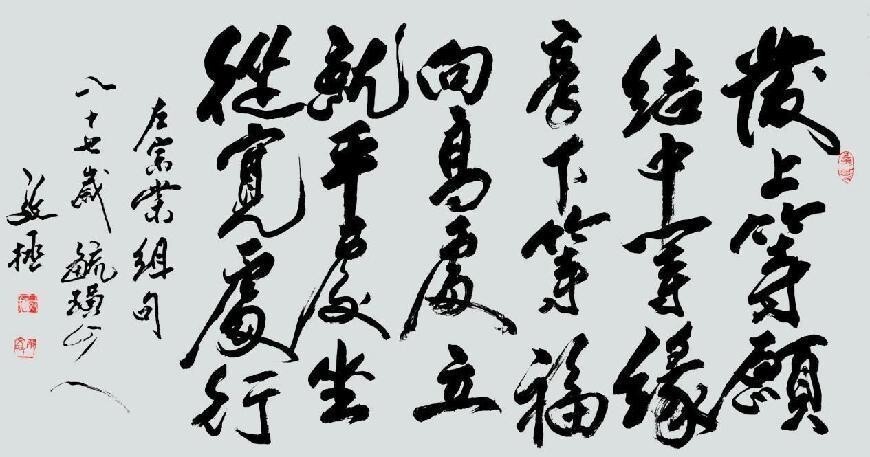 發上等願
結中等緣
享下等福
向高處立
就平處坐
從寬處行
左宗棠組句
八十七歲毓璜